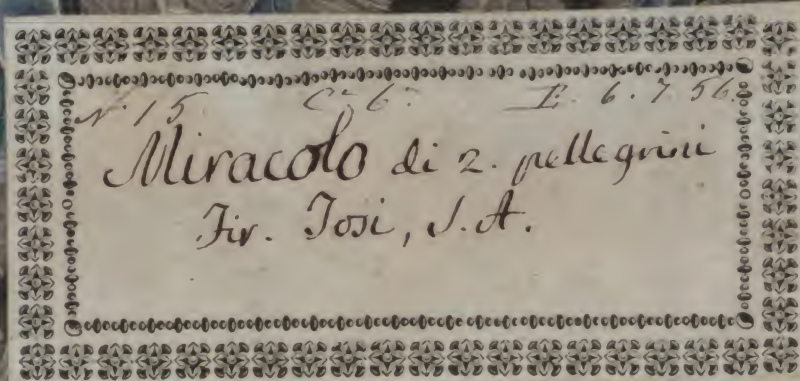 N. 15. Cª 6ª E. 6. 7. 56.
Miracolo di 2. pellegrini
Fir. Tosi, S.A.